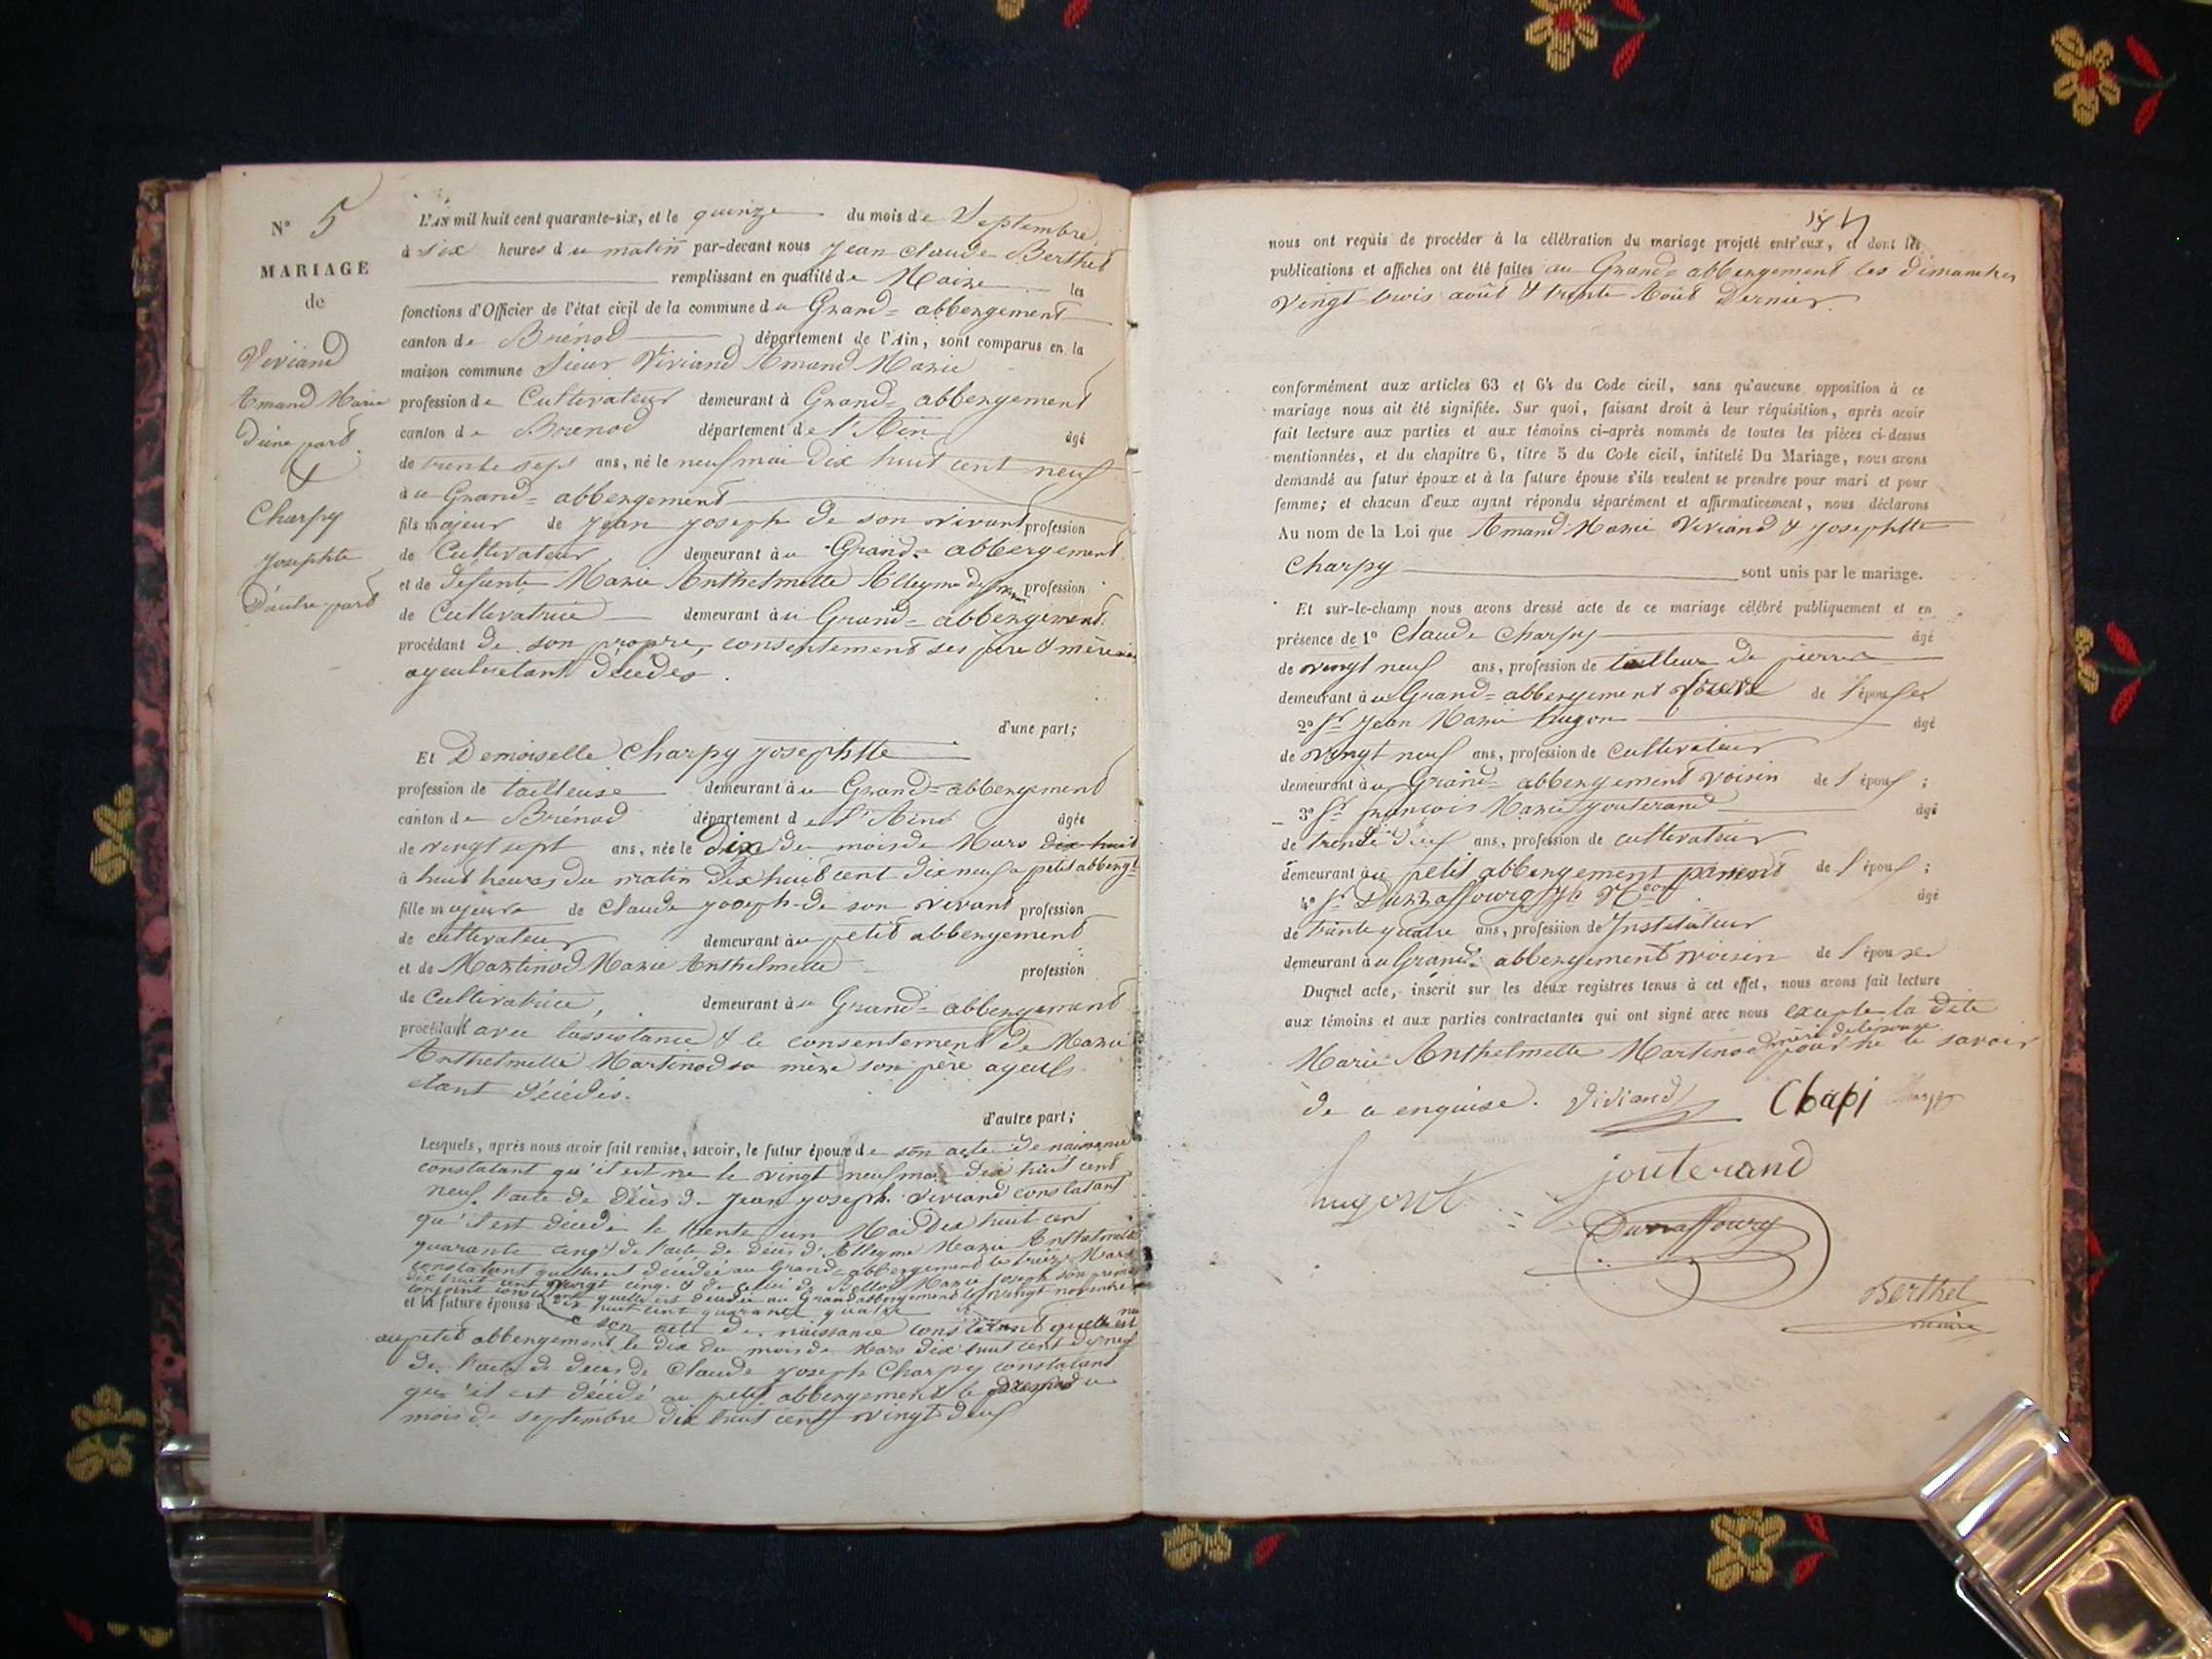 N° 5
MARIAGE
de
Viviand
Amand Marie
d'une part
&
Charpy
Josephte
D'autre part
L'AN mil huit cent quarante-six, et le quinze du mois de Septembre
à six heures du matin par-devant nous Jean Claude Berthet
remplissant en qualité de Maire les
fonctions d'Officier de l'état civil de la commune du Grand-abbergement
canton de Brénod département de l'Ain, sont comparus en la
maison commune Sieur Viviand Amand Marie
profession de Cultivateur demeurant à Grand-abbergement
canton de Brénod département de l'Ain âgé
de trente sept ans, né le neuf mai dix huit cent neuf
au Grand-abbergement
fils majeur de Jean Joseph de son vivant profession
de Cultivateur, demeurant au Grand-abbergement
et de defunte Marie Anthelmette Alleyme profession
de Cultivatrice demeurant au Grand-abbergement
procédant de son propre consentement ses père & mère
ayeuls etant décédes.
d'une part;
Et Demoiselle Charpy Josephtte
profession de tailleuse demeurant au Grand-abbergement
canton de Brénod département de l'Ain âgée
de vingt sept ans, née le Dix du mois de Mars dix huit
à huit heures du matin dix huit cent dix neuf a petit abbengt
fille majeure de Claude Joseph de son vivant profession
de cultivateur demeurant au petit abbergement
et de Martinod Marie Anthelmette profession
de Cultivatrice, demeurant au Grand-abbergement
procédant avec lassistance & le consentement de Marie
Anthelmette Martinod sa mère son père ayeuls
etant décédés.
d'autre part;
Lesquels, après nous avoir fait remise, savoir, le futur époux de son acte de naissance
constatant qu'il est ne le vingt neuf mai dix huit cent
neuf, l'acte de décès de Jean Joseph Viviand constatant
qu'il est décédé le trente un Mai Dix huit cent
quarante cinq & de l'acte de décès d'Alleyme Marie Anthelmette
constatant quelle est décédée au Grand-abbergement le treize Mars
dix huit cent vingt cinq. & de celui de Marie Joseph son premier
conjoint constatant quelle est décédée au Grand abbergement le vingt novembre
et la future épouse dix huit cent quarante quatre
de son acte de naissance constatant quelle est née
au petit abbergement le dix du mois de Mars dix huit cent dix neuf
de l'acte de décès de Claude Joseph Charpy constatant
qu'il est décédé au petit abbergement le du
mois de septembre dix huit cent vingt deux
nous ont requis de procéder à la célébration du mariage projeté entr'eux, et dont les
publications et affiches ont été faites au Grand-abbergement les dimanches
vingt trois août & trente Août Dernier.
conformément aux articles 63 et 64 du Code civil, sans qu'aucune opposition à ce
mariage nous ait été signifiée. Sur quoi, faisant droit à leur réquisition, après avoir
fait lecture aux parties et aux témoins ci-après nommés de toutes les pièces ci-dessus
mentionnées, et du chapitre 6, titre 5 du Code civil, intitulé Du Mariage, nous avons
demandé au futur époux et à la future épouse s'ils veulent se prendre pour mari et pour
femme; et chacun d'eux ayant répondu séparément et affirmativement, nous déclarons
Au nom de la Loi que Amand Marie Viviand & Josephtte
Charpy sont unis par le mariage.
Et sur-le-champ nous avons dressé acte de ce mariage célébré publiquement et en
présence de 1° Claude Charpy âgé
de vingt neuf ans, profession de tailleur de pierre
demeurant au Grand-abbergement frere de l'épouse
2° Sr Jean Marie hugon âgé
de vingt neuf ans, profession de cultivateur
demeurant au Grand-abbergement voisin de l'époux;
3° Sr françois Marie Jouterand âgé
de trente ans, profession de cultivateur
demeurant au petit abbergement parent de l'époux;
4° Sr Dunaffourg âgé
de trente quatre ans, profession de Instituteur
demeurant au Grand-abbergement voisin de l'épouse
Duquel acte, inscrit sur les deux registres tenus à cet effet, nous avons fait lecture
aux témoins et aux parties contractantes qui ont signé avec nous excepte la dite
Marie Anthelmette Martinod mère de lépouse pour ne le savoir
de ce enquise. Viviand Chapi Charpy
hugont jouterand
Dunaffourg
Berthet
maire